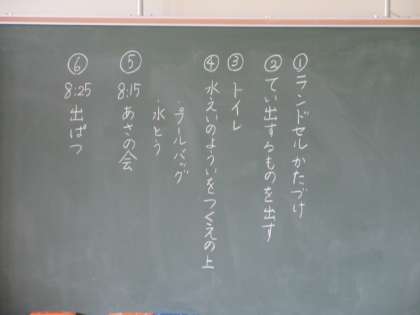 ① ランドセルかたづけ
② てい出するものを出す
③ トイレ
④ 水えいのよういをつくえの上
・プールバッグ
・水とう
⑤ 8:15 あさの会
⑥ 8:25 出ぱつ